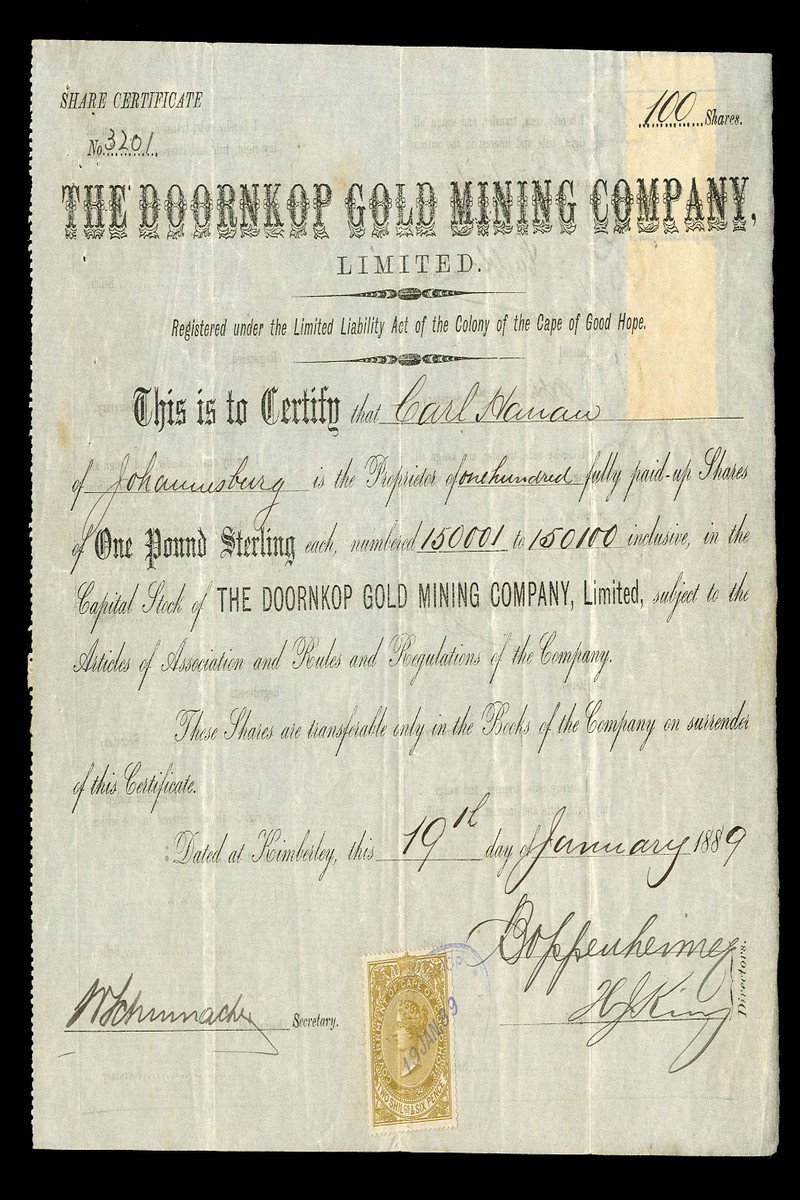 SHARE CERTIFICATE
100 Shares.
No. 3201.
THE DOORNKOP GOLD MINING COMPANY,
LIMITED.
Registered under the Limited Liability Act of the Colony of the Cape of Good Hope.
This is to Certify that Carl Hanau
of Johannesburg is the Proprietor of one hundred fully paid-up Shares
of One Pound Sterling each, numbered 150001 to 150100 inclusive, in the
Capital Stock of THE DOORNKOP GOLD MINING COMPANY, Limited, subject to the
Articles of Association and Rules and Regulations of the Company.
These Shares are transferable only in the Books of the Company on surrender
of this Certificate.
Dated at Kimberley, this 19th day of January 1889
Boppenheimer
H J King
Directors.
W Schumacher Secretary.
GOVERNMENT OF CAPE OF GOOD HOPE
19 JAN 89
TWO SHILGS & SIX PENCE